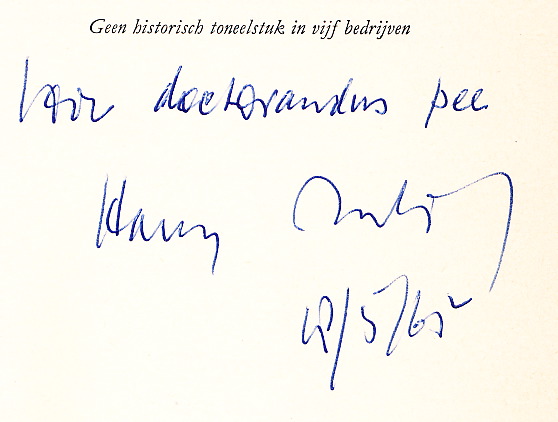 Geen historisch toneelstuk in vijf bedrijven
Voor doctorandus pee
Harry Mulisch